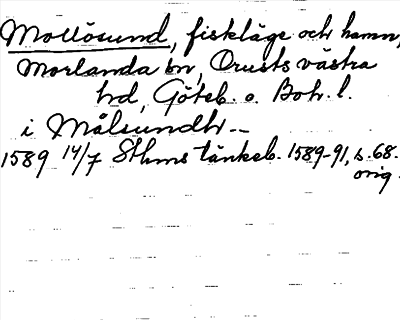 Mollösund, fiskläge och hamn,
Morlanda sn, Orusts västra
hd, Göteb. o. Boh. l.
i Målsundh --
1589 14/7 Sthms tänkeb. 1589-91, s. 68.
orig.